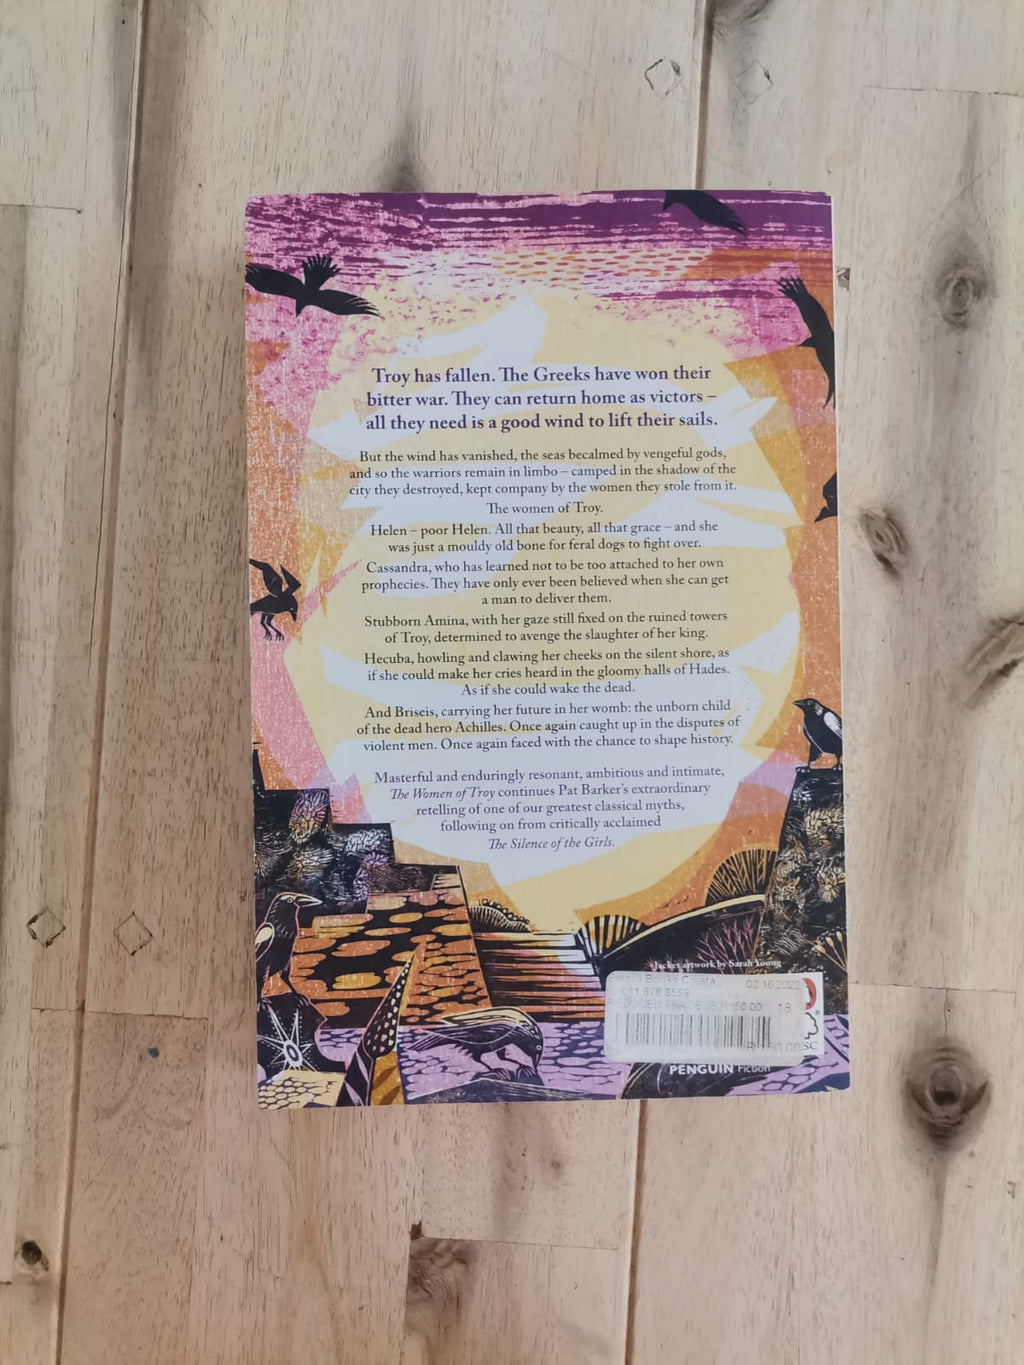 Troy has fallen. The Greeks have won their
bitter war. They can return home as victors –
all they need is a good wind to lift their sails.
But the wind has vanished, the seas becalmed by vengeful gods,
and so the warriors remain in limbo – camped in the shadow of the
city they destroyed, kept company by the women they stole from it.
The women of Troy.
Helen – poor Helen. All that beauty, all that grace – and she
was just a mouldy old bone for feral dogs to fight over.
Cassandra, who has learned not to be too attached to her own
prophecies. They have only ever been believed when she can get
a man to deliver them.
Stubborn Amina, with her gaze still fixed on the ruined towers
of Troy, determined to avenge the slaughter of her king.
Hecuba, howling and clawing her cheeks on the silent shore, as
if she could make her cries heard in the gloomy halls of Hades.
As if she could wake the dead.
And Briseis, carrying her future in her womb: the unborn child
of the dead hero Achilles. Once again caught up in the disputes of
violent men. Once again faced with the chance to shape history.
Masterful and enduringly resonant, ambitious and intimate,
The Women of Troy continues Pat Barker's extraordinary
retelling of one of our greatest classical myths,
following on from critically acclaimed
The Silence of the Girls.
Jacket artwork by Sarah Young
02.16.2022
011 678 9559
18
SC
PENGUIN Fiction